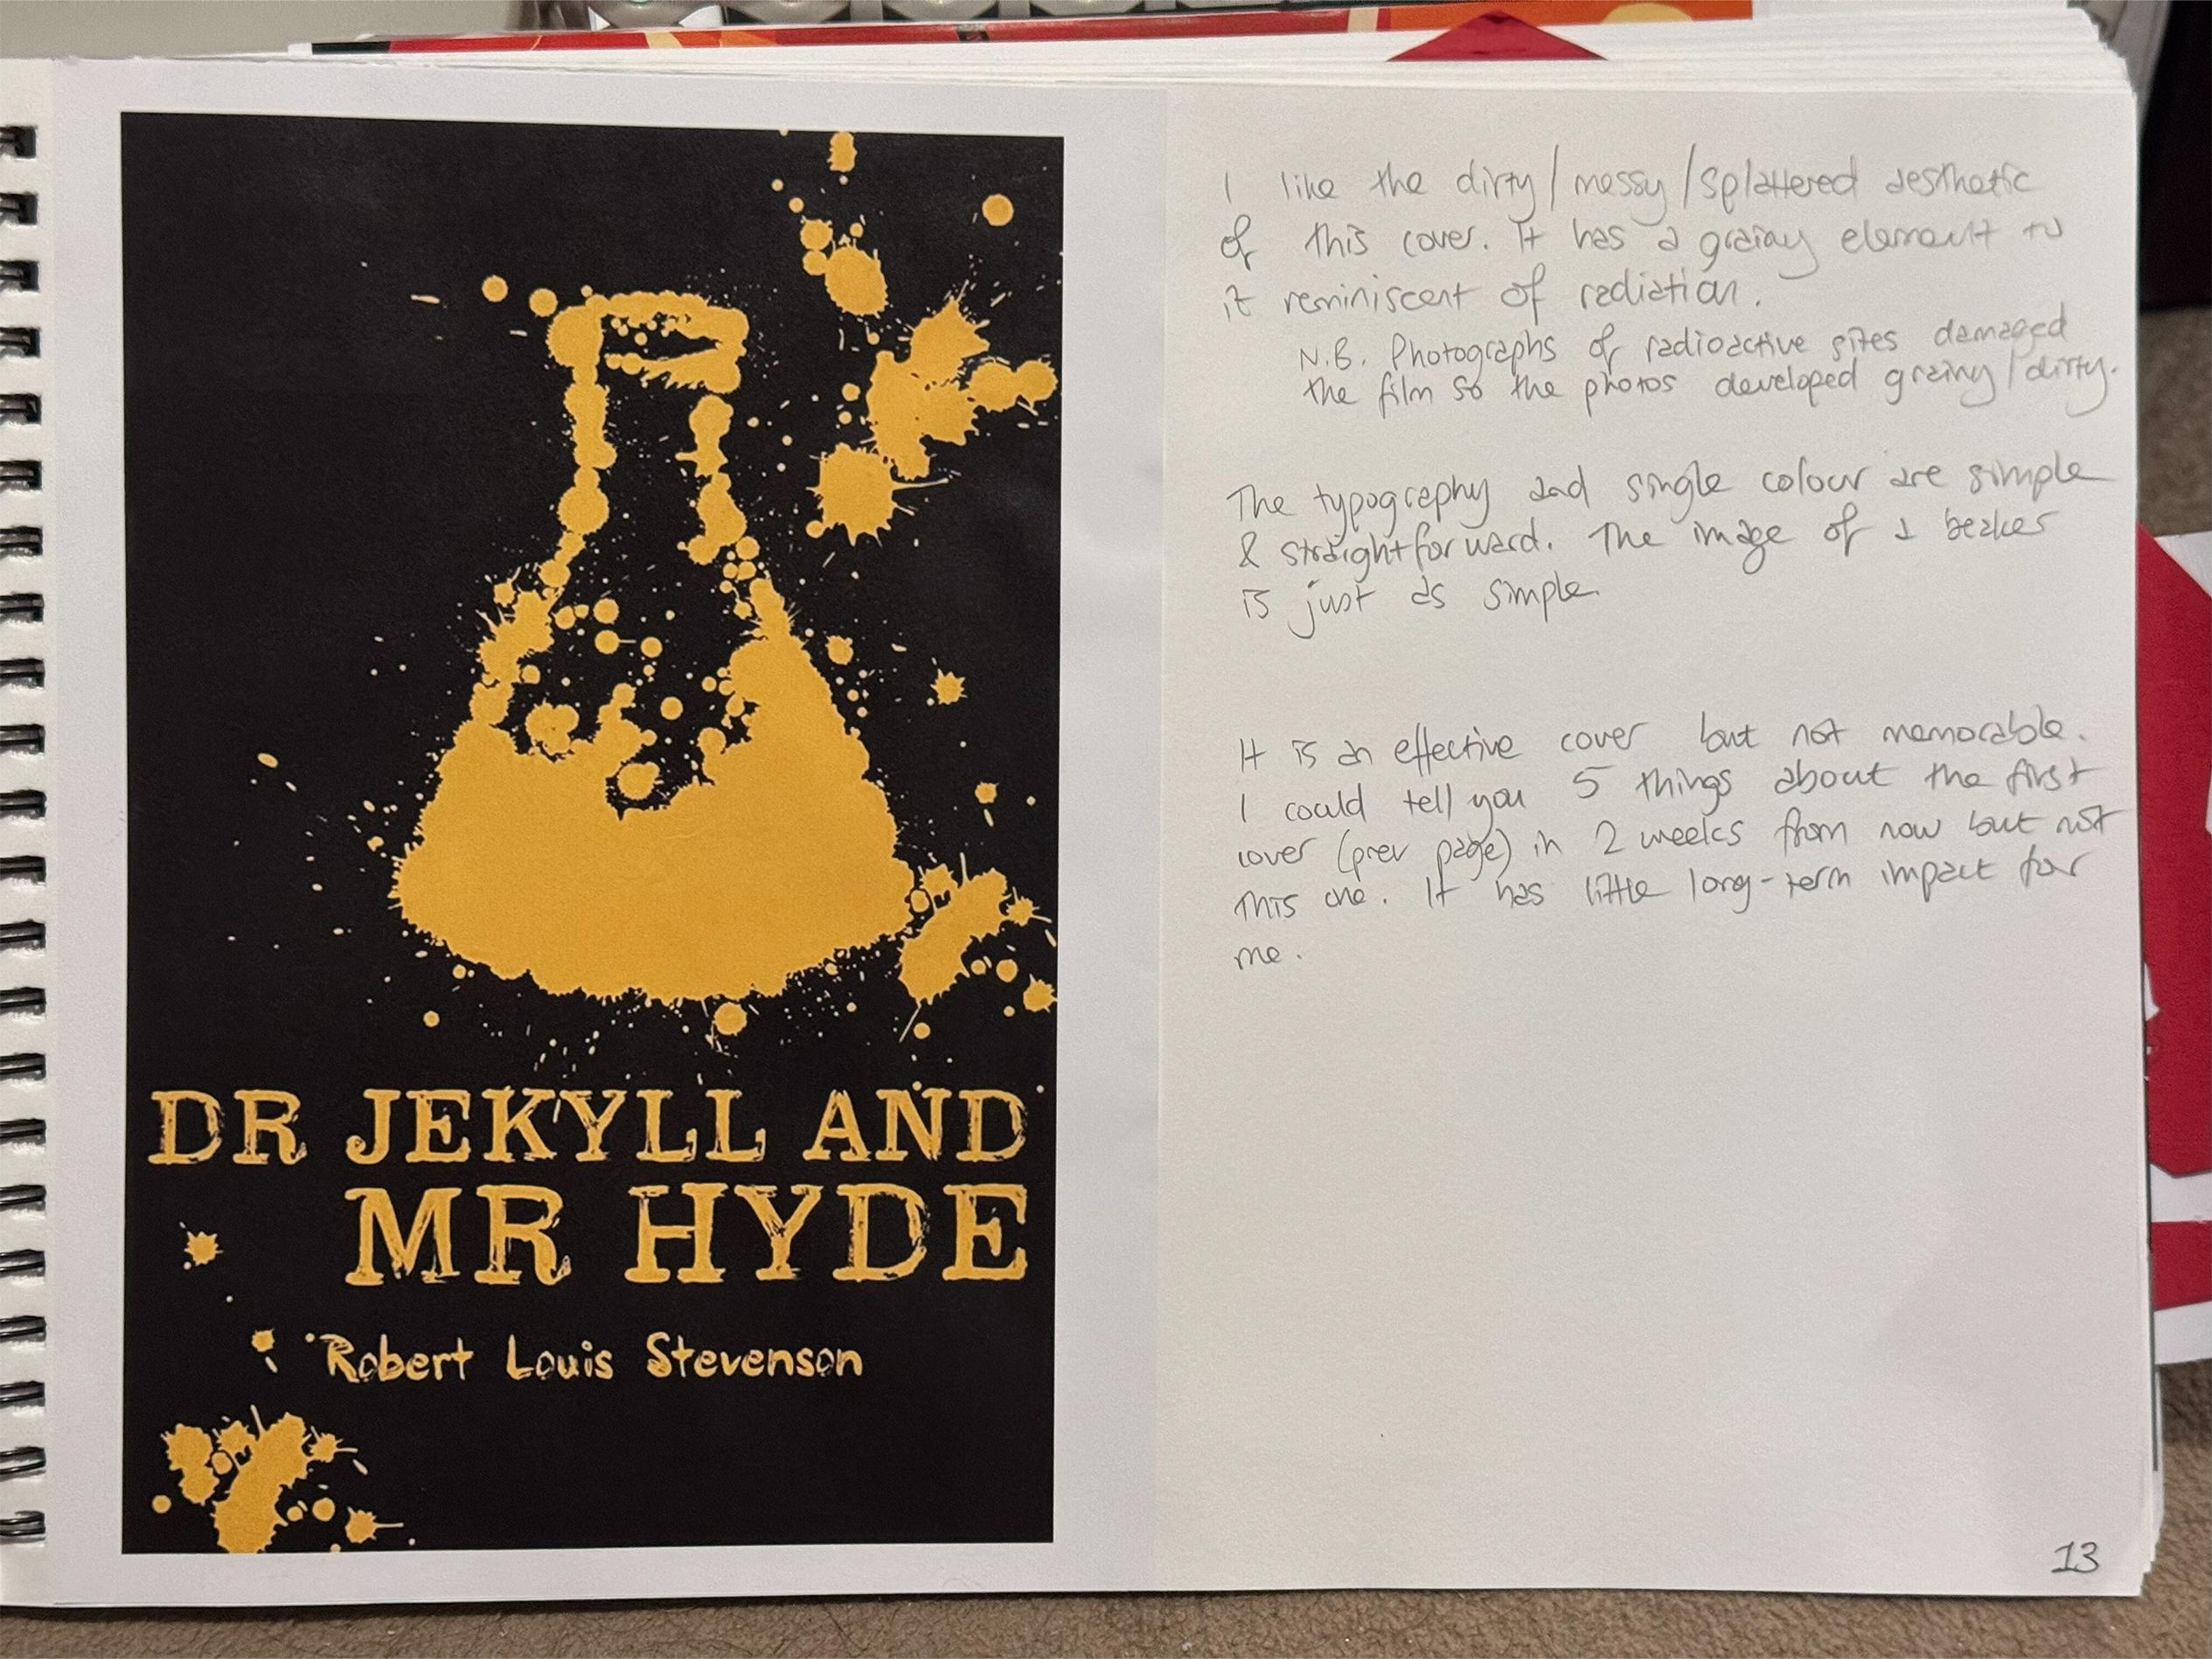 DR JEKYLL AND
MR HYDE
Robert Louis Stevenson
I like the dirty/messy/splattered aesthetic
of this cover. It has a grainy element to
it reminiscent of radiation.
N.B. Photographs of radioactive sites damaged
the film so the photos developed grainy/dirty.
The typography and single colour are simple
& straightforward. The image of a beaker
is just as simple.
It is an effective cover but not memorable.
I could tell you 5 things about the first
cover (prev page) in 2 weeks from now but not
this one. It has little long-term impact for
me.
13